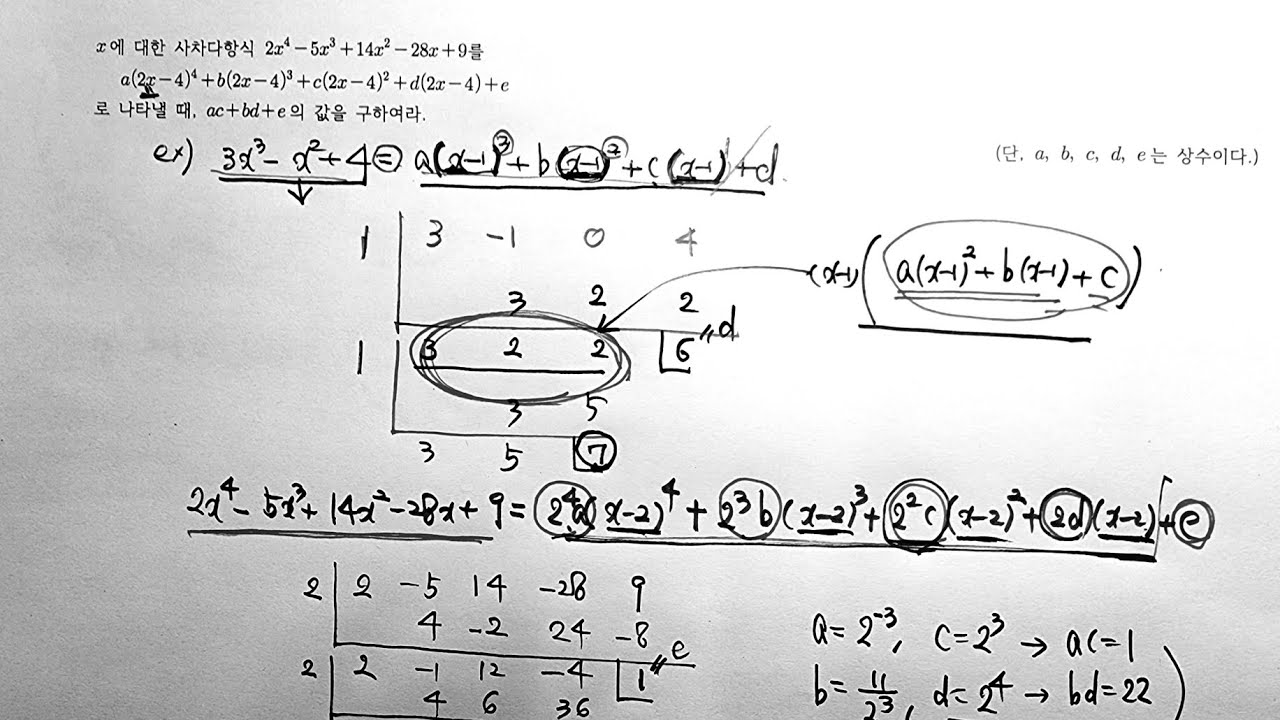 x에 대한 사차다항식 2x⁴−5x³+14x²−28x+9를
a(2x−4)⁴+b(2x−4)³+c(2x−4)²+d(2x−4)+e
로 나타낼 때, ac+bd+e의 값을 구하여라.
(단, a, b, c, d, e는 상수이다.)
ex) 3x³ − x² + 4 = a(x−1)³ + b(x−1)² + c(x−1) + d
1 3 −1 0 4
(x−1)( a(x−1)² + b(x−1) + c )
3 2 2
d
1 3 2 2 6
3 5
3 5 7
2x⁴ − 5x³ + 14x² − 28x + 9 = 2⁴a(x−2)⁴ + 2³b(x−2)³ + 2²c(x−2)² + 2d(x−2) + e
2 2 −5 14 −28 9
4 −2 24 −8
e
2 2 −1 12 −4 1
4 6 36
a = 2⁻³, c = 2³ → ac = 1
b = 11/2³, d = 2⁴ → bd = 22